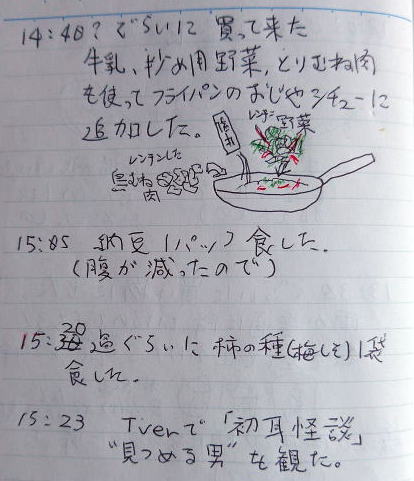 14:40?ぐらいに 買って来た
牛乳、炒め用野菜、とりむね肉
も使ってフライパンのおじやシチューに
追加した。
牛乳
レンチン野菜
レンチンした
鳥むね
肉
15:05 納豆1パック食した。
(腹が減ったので)
15:20過ぐらいに 柿の種(梅しそ)1袋
食した。
15:23 Tverで「初耳怪談」
"見つめる男"を観た。